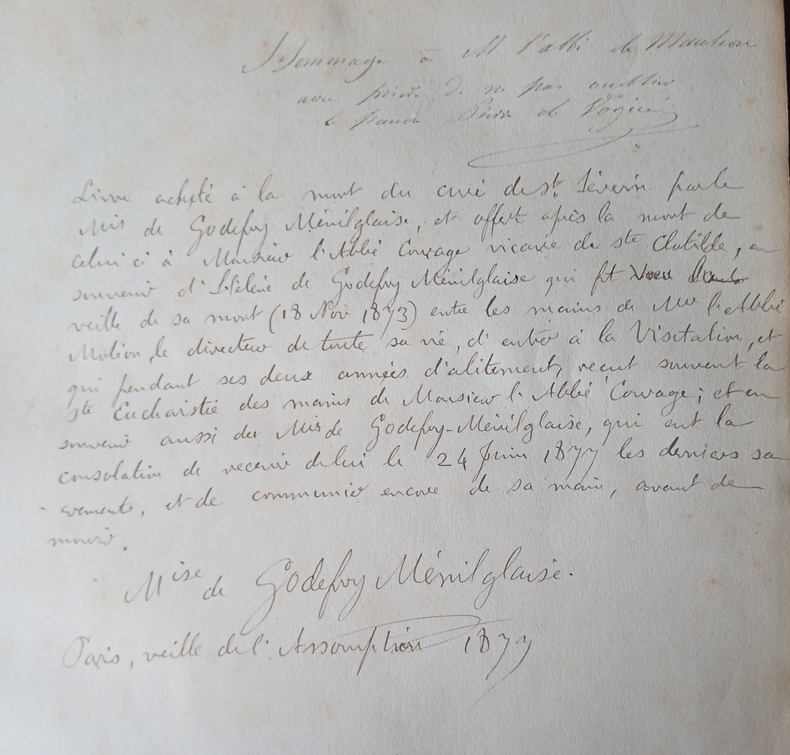 Hommage à M l'abbé de
avec prière de ne pas oublier
le pauvre Pierre de
Livre acheté à la mort du curé de St. Séverin par le
Mis de Godefroy Ménilglaise, et offert après la mort de
celui ci à Monsieur l'Abbé Courage vicaire de Ste Clotilde, en
souvenir d'Hélène de Godefroy Ménilglaise qui fit voeu la
veille de sa mort (18 Nov 1873) entre les mains de Mr l'Abbé
le directeur de toute sa vie, d'entrer à la Visitation, et
qui pendant ses deux années d'alitement, reçut souvent la
Ste Eucharistie des mains de Monsieur l'Abbé Courage; et en
souvenir aussi du Mis de Godefroy-Ménilglaise, qui eut la
consolation de recevoir de lui le 24 Juin 1877 les derniers sa
-crements, et de communier encore de sa main, avant de
mourir.
Mise de Godefroy Ménilglaise.
Paris, veille de l'Assomption 1877